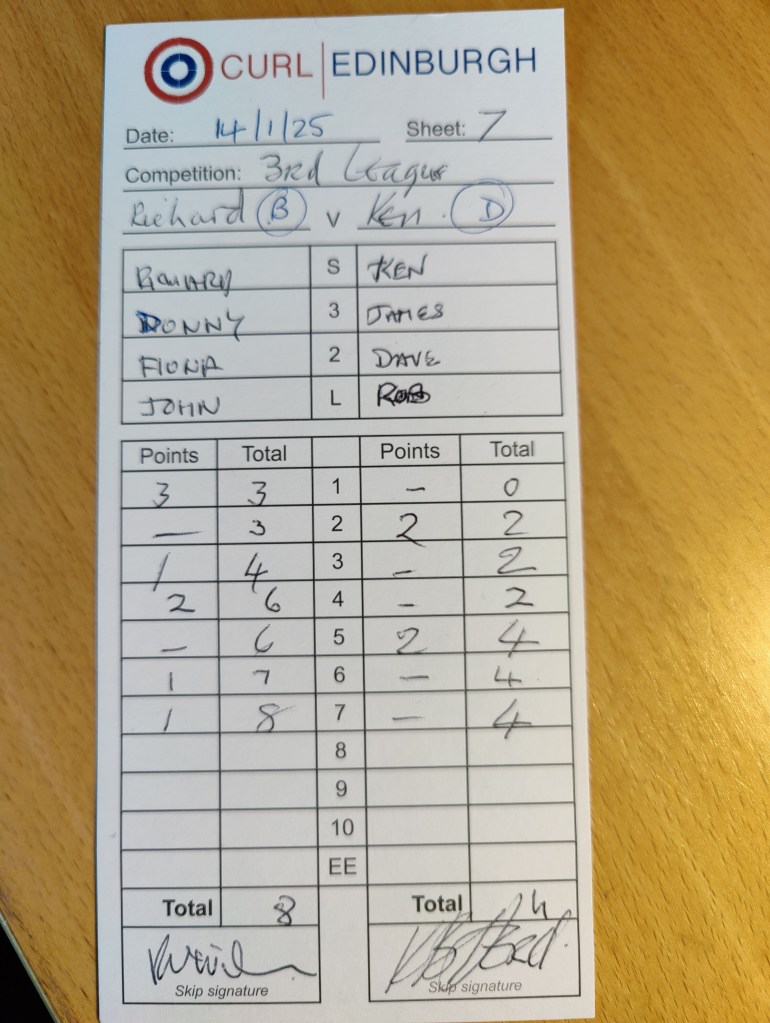 CURL | EDINBURGH
Date: 14/1/25 Sheet: 7
Competition: 3rd League
Richard B v Ken. D
RICHARD S KEN
DONNY 3 JAMES
FIONA 2 DAVE
JOHN L ROB
Points Total Points Total
3 3 1 – 0
– 3 2 2 2
1 4 3 – 2
2 6 4 – 2
– 6 5 2 4
1 7 6 – 4
1 8 7 – 4
8
9
10
EE
Total 8 Total 4
Skip signature Skip signature